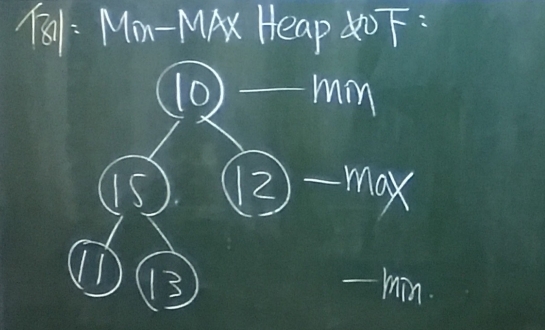 例: Min-MAX Heap 如下:
10 — min
15 12 — max
11 13 — min.